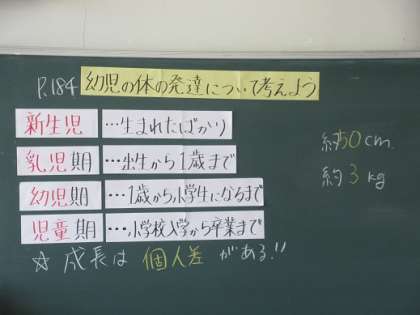 P.184 幼児の体の発達について考えよう
新生児 …生まれたばかり
乳児期 …出生から1歳まで
幼児期 …1歳から小学生になるまで
児童期 …小学校入学から卒業まで
☆ 成長は 個人差 がある!!
約50cm.
約3kg